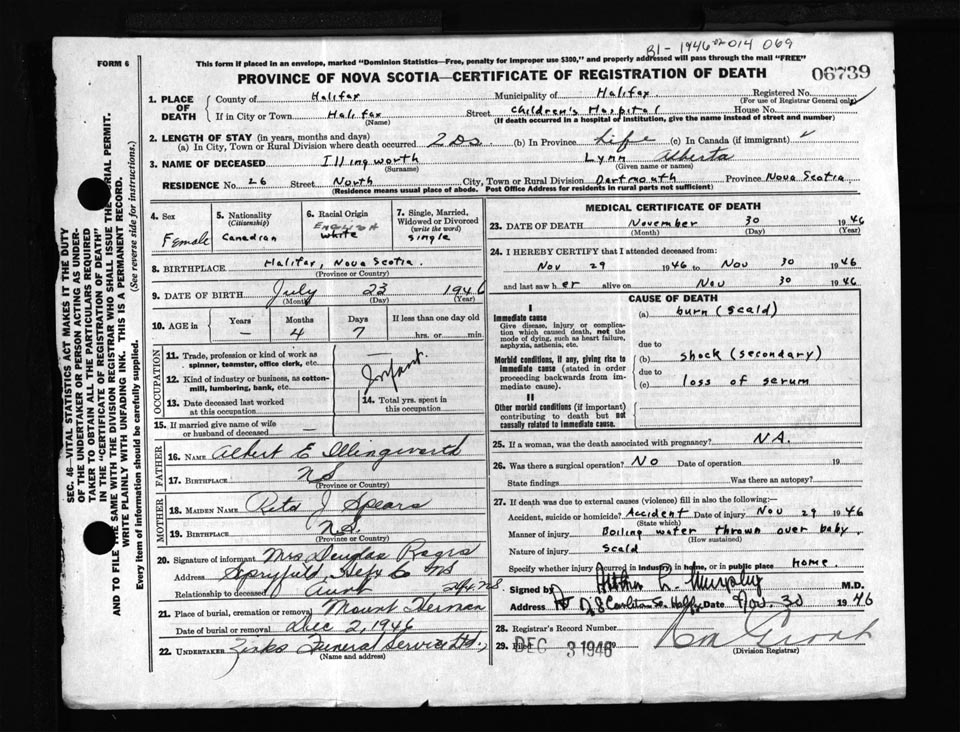 B1-1946-02-014069
FORM 6
This form if placed in an envelope, marked "Dominion Statistics—Free, penalty for improper use $300," and properly addressed will pass through the mail "FREE"
PROVINCE OF NOVA SCOTIA—CERTIFICATE OF REGISTRATION OF DEATH
06739
SEC. 46–VITAL STATISTICS ACT MAKES IT THE DUTY
OF THE UNDERTAKER OR PERSON ACTING AS UNDER-
TAKER TO OBTAIN ALL THE PARTICULARS REQUIRED
IN THE "CERTIFICATE OF REGISTRATION OF DEATH"
AND TO FILE THE SAME WITH THE DIVISION REGISTRAR WHO SHALL ISSUE THE BURIAL PERMIT.
WRITE PLAINLY WITH UNFADING INK. THIS IS A PERMANENT RECORD.
Every item of information should be carefully supplied. (See reverse side for instructions.)
1. PLACE OF DEATH
County of Halifax Municipality of Halifax Registered No.
(For use of Registrar General only)
If in City or Town Halifax Street Children's Hospital House No.
(Name) (If death occurred in a hospital or institution, give the name instead of street and number)
2. LENGTH OF STAY (in years, months and days)
(a) In City, Town or Rural Division where death occurred 2 Ds (b) In Province Life (c) In Canada (if immigrant)
3. NAME OF DECEASED Illingworth Lynn Alberta
(Surname) (Given name or names)
RESIDENCE No. 26 Street North City, Town or Rural Division Dartmouth Province Nova Scotia
(Residence means usual place of abode. Post Office Address for residents in rural parts not sufficient)
4. Sex Female
5. Nationality (Citizenship) Canadian
6. Racial Origin English White
7. Single, Married, Widowed or Divorced (write the word) Single
8. BIRTHPLACE Halifax, Nova Scotia.
(Province or Country)
9. DATE OF BIRTH July 23 1946
(Month) (Day) (Year)
10. AGE in Years Months Days If less than one day old
— 4 7 hrs. or min.
OCCUPATION
11. Trade, profession or kind of work as spinner, teamster, office clerk, etc. —
12. Kind of industry or business, as cotton-mill, lumbering, bank, etc. Infant.
13. Date deceased last worked at this occupation
14. Total yrs. spent in this occupation
15. If married give name of wife or husband of deceased —
FATHER
16. NAME Albert E Illingworth
17. BIRTHPLACE NS
(Province or Country)
MOTHER
18. MAIDEN NAME Reta J Spears
19. BIRTHPLACE N.S.
(Province or Country)
20. Signature of informant Mrs Douglas
Address Spryfield, Hfx Co NS
Relationship to deceased Aunt Hfx NS
21. Place of burial, cremation or removal Mount Hermon
Date of burial or removal Dec 2, 1946
22. UNDERTAKER Zinks Funeral Service Ltd.
(Name and address)
MEDICAL CERTIFICATE OF DEATH
23. DATE OF DEATH November 30 1946
(Month) (Day) (Year)
24. I HEREBY CERTIFY that I attended deceased from:
Nov 29 1946 to Nov 30 1946
and last saw her alive on Nov 30 1946
CAUSE OF DEATH
I
Immediate cause
Give disease, injury or complication which caused death, not the mode of dying, such as heart failure, asphyxia, asthenia, etc.
(a) burn (scald)
due to
Morbid conditions, if any, giving rise to immediate cause (stated in order proceeding backwards from immediate cause).
(b) shock (secondary)
due to
(c) loss of serum
II
Other morbid conditions (if important) contributing to death but not causally related to immediate cause.
25. If a woman, was the death associated with pregnancy? NA.
26. Was there a surgical operation? No Date of operation 19
State findings Was there an autopsy?
27. If death was due to external causes (violence) fill in also the following:—
Accident, suicide or homicide? Accident Date of injury Nov 29 1946
(State which)
Manner of injury Boiling water thrown over baby.
(How sustained)
Nature of injury Scald
Specify whether injury occurred in industry, in home, or in public place home.
Signed by Arthur L. Murphy M.D.
Address 28 Carlton St. Halifax Date Nov. 30 1946
28. Registrar's Record Number
29. Filed DEC 3 1946
(Division Registrar)